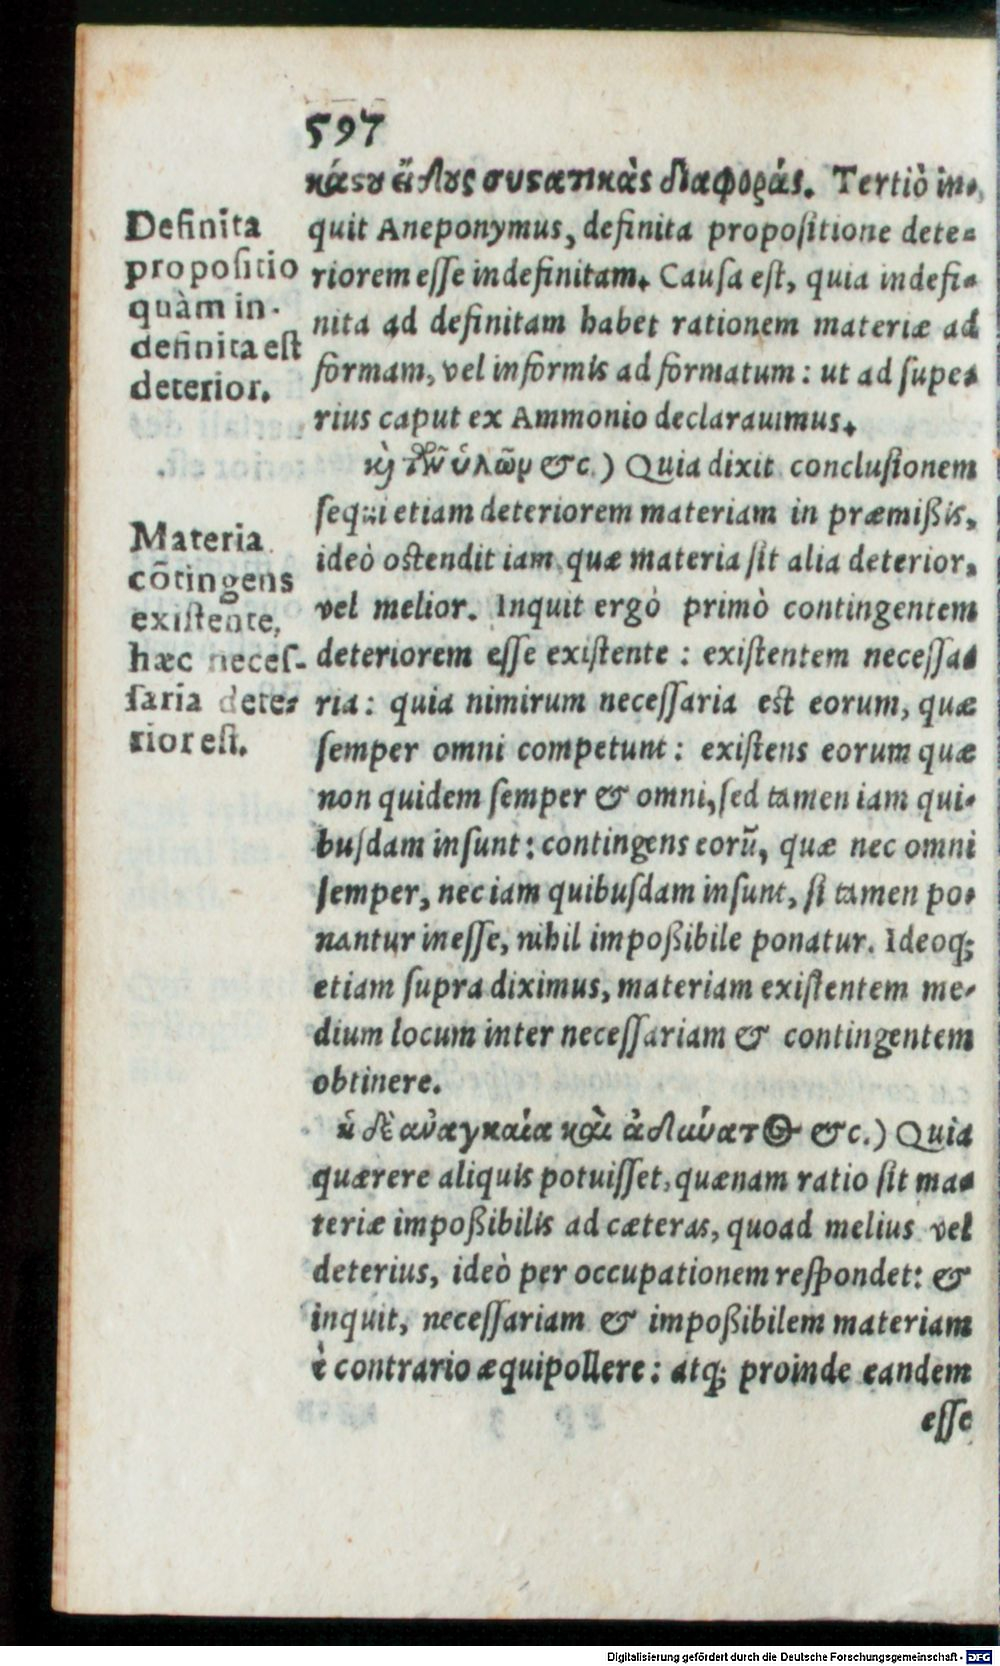 597
κάϛου εἴδους συϛατικὰς διαφοράς. Tertiò in-
quit Aneponymus, definita propositione dete-
riorem esse indefinitam. Causa est, quia indefi-
nita ad definitam habet rationem materiæ ad
formam, vel informis ad formatum: ut ad supe-
rius caput ex Ammonio declarauimus.
Definita
propositio
quàm in-
definita est
deterior.
καὶ τῶν ὑλῶν &c.) Quia dixit conclusionem
sequi etiam deteriorem materiam in præmißis,
ideò ostendit iam quæ materia sit alia deterior,
vel melior. Inquit ergò primò contingentem
deteriorem esse existente: existentem necessa-
ria: quia nimirum necessaria est eorum, quæ
semper omni competunt: existens eorum quæ
non quidem semper & omni, sed tamen iam qui-
busdam insunt: contingens eorũ, quæ nec omni
semper, nec iam quibusdam insunt, si tamen po-
nantur inesse, nihil impoßibile ponatur. Ideoq;
etiam supra diximus, materiam existentem me-
dium locum inter necessariam & contingentem
obtinere.
Materia
cõtingens
existente,
hæc neces-
saria dete-
rior est.
ἡ δὲ ἀναγκαία καὶ ἀδύνατος &c.) Quia
quærere aliquis potuisset, quænam ratio sit ma-
teriæ impoßibilis ad cæteras, quoad melius vel
deterius, ideò per occupationem respondet: &
inquit, necessariam & impoßibilem materiam
è contrario æquipollere: atq; proinde eandem
esse
Digitalisierung gefördert durch die Deutsche Forschungsgemeinschaft - DFG